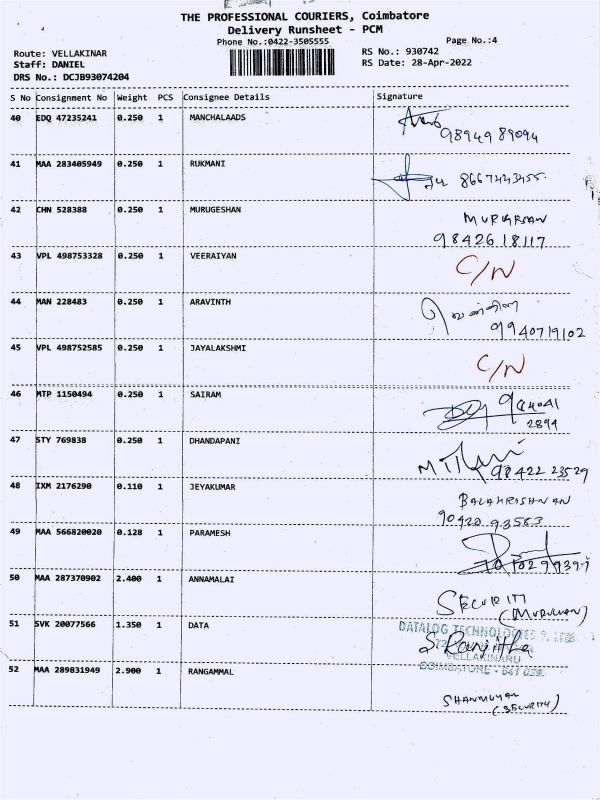 THE PROFESSIONAL COURIERS, Coimbatore
Delivery Runsheet - PCM
Phone No.:0422-3505555
Page No.:4
Route: VELLAKINAR
RS No.: 930742
Staff: DANIEL
RS Date: 28-Apr-2022
DRS No.: DCJB93074204
S No Consignment No Weight PCS Consignee Details Signature
40 EDQ 47235241 0.250 1 MANCHALAADS
98949 89094
41 MAA 283405949 0.250 1 RUKMANI
8667443455
42 CHN 528388 0.250 1 MURUGESHAN
MURUGSAN
9842618117
43 VPL 498753328 0.250 1 VEERAIYAN C/N
44 MAN 228483 0.250 1 ARAVINTH
9940719102
45 VPL 498752585 0.250 1 JAYALAKSHMI C/N
46 MTP 1150494 0.250 1 SAIRAM
94041
2894
47 STY 769838 0.250 1 DHANDAPANI
98422 23529
48 IXM 2176290 0.110 1 JEYAKUMAR
BALAKRISHNAN
90420 93563
49 MAA 566820020 0.128 1 PARAMESH
50 MAA 287370902 2.400 1 ANNAMALAI
SECURITI
(MURUGAN)
51 SVK 20077566 1.350 1 DATA
DATALOG TECHNOLOGIES P. LTD.
S Ranjitha
VELLAKINARU
COIMBATORE - 641 029.
52 MAA 289831949 2.900 1 RANGAMMAL
SHANMUGAN
(SECURITY)